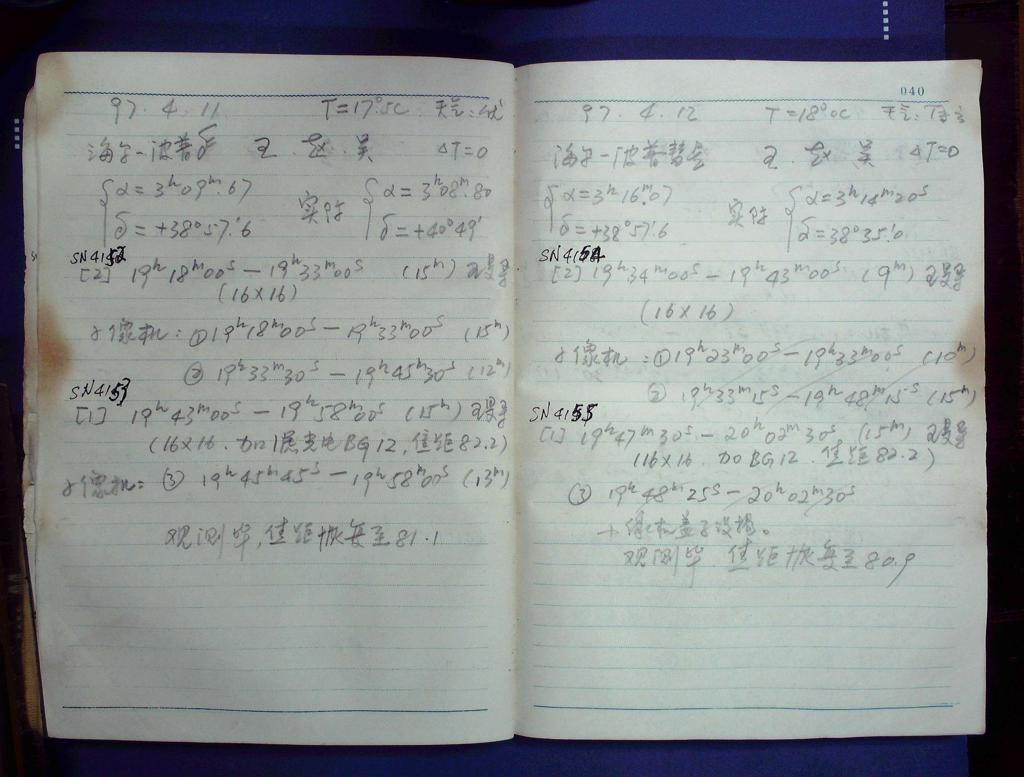 97. 4. 11 T=17°.5C 天气:优
海尔-波普 王. 赵. 吴 ΔT=0
α=3ʰ09ᵐ.67 实际 α=3ʰ08ᵐ.80
δ=+38°57'.6 δ=+40°49'
SN4152
[2] 19ʰ18ᵐ00ˢ-19ʰ33ᵐ00ˢ (15ᵐ)
(16×16)
像机:①19ʰ18ᵐ00ˢ-19ʰ33ᵐ00ˢ (15ᵐ)
②19ʰ33ᵐ30ˢ-19ʰ45ᵐ30ˢ (12ᵐ)
SN4153
[1] 19ʰ43ᵐ00ˢ-19ʰ58ᵐ00ˢ (15ᵐ)
(16×16. 加 BG12, 焦距82.2)
像机: ③ 19ʰ45ᵐ45ˢ-19ʰ58ᵐ00ˢ (13ᵐ)
观测毕, 焦距恢复至81.1
040
97. 4. 12 T=18°.0C 天气:
海尔-波普彗星 王. 赵 吴 ΔT=0
α=3ʰ16ᵐ.07 实际 α=3ʰ14ᵐ20ˢ
δ=+38°57'.6 α=38°35'.0
SN4154
[2] 19ʰ34ᵐ00ˢ-19ʰ43ᵐ00ˢ (9ᵐ)
(16×16)
像机:①19ʰ23ᵐ00ˢ-19ʰ33ᵐ00ˢ (10ᵐ)
② 19ʰ33ᵐ15ˢ-19ʰ48ᵐ15ˢ (15ᵐ)
SN4155
[1] 19ʰ47ᵐ30ˢ-20ʰ02ᵐ30ˢ (15ᵐ)
(16×16. 加BG12. 焦距82.2)
③ 19ʰ48ᵐ25ˢ-20ʰ02ᵐ30ˢ
像机盖子没揭。
观测毕. 焦距恢复至80.9